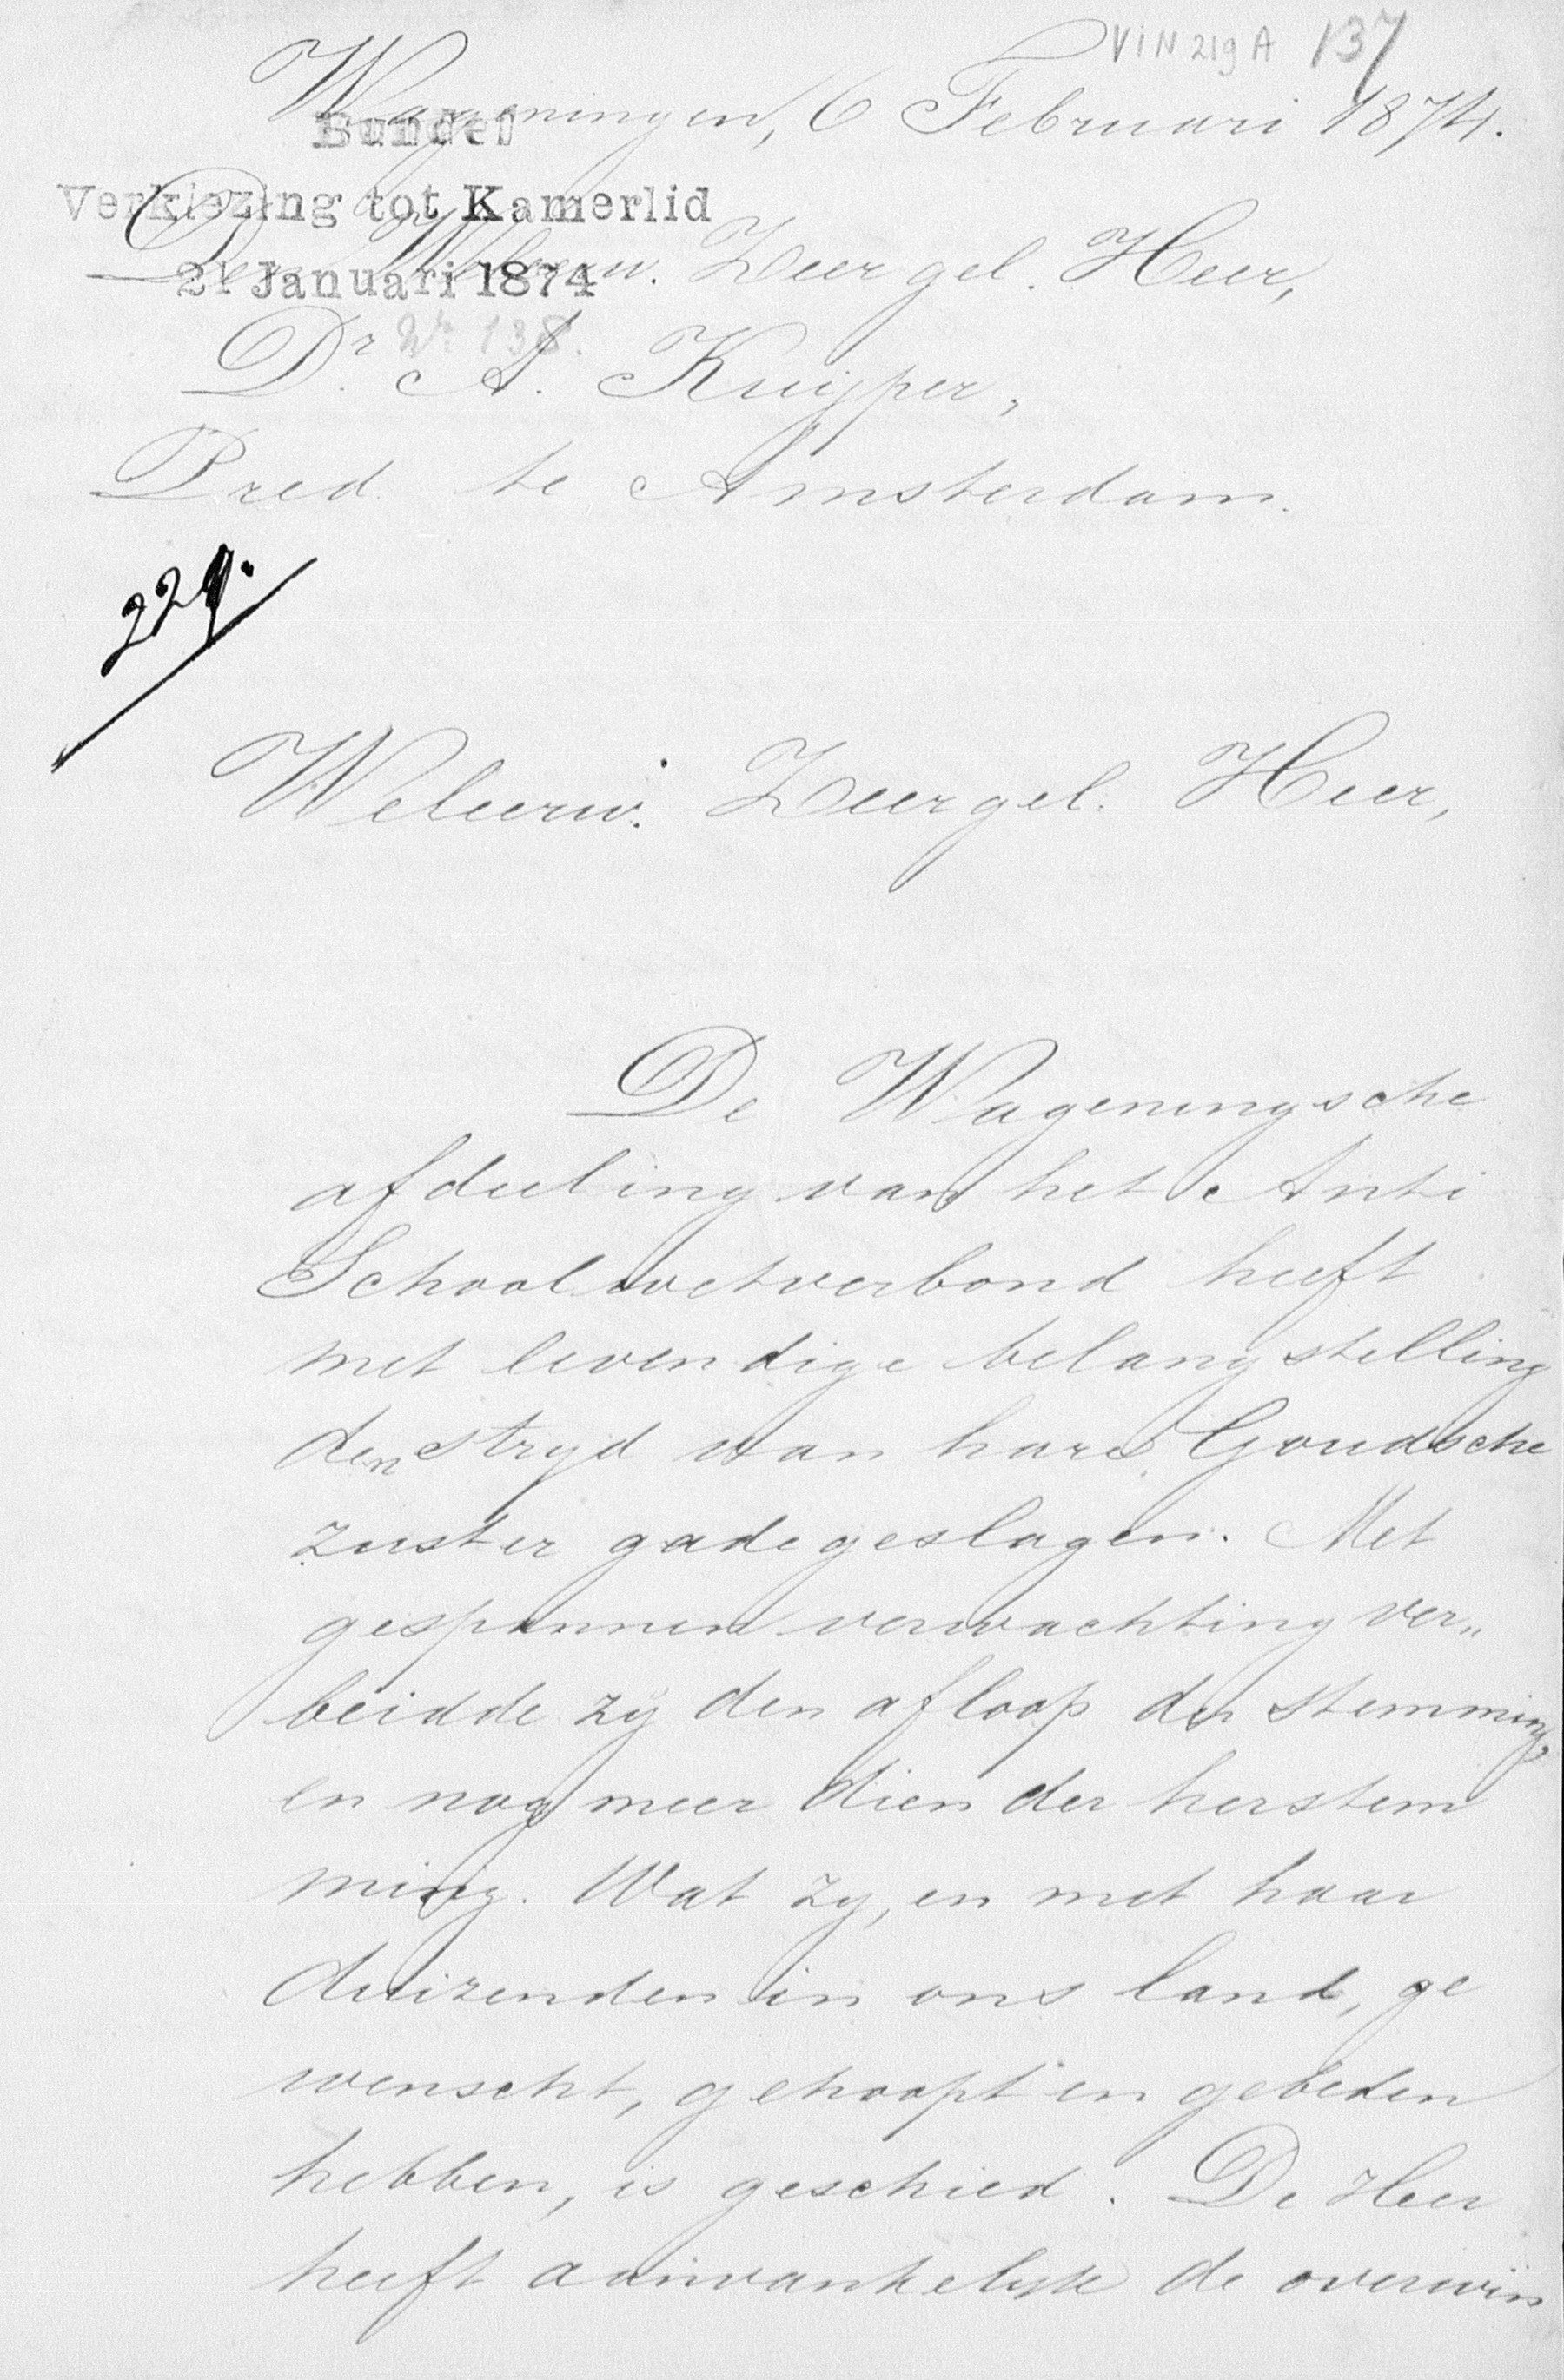 VIN 219 A 137
Wageningen, 6 Februari 1874.
Bundel
Verkiezing tot Kamerlid
Den Weleerw. Zeergel. Heer,
21 Januari 1874
No 138.
Dr. A. Kuijper,
Pred. te Amsterdam.
229.
Weleerw. Zeergel. Heer,
De Wageningsche
afdeeling van het Anti
Schoolwetverbond heeft
met levendige belangstelling
den stryd van hare Goudsche
zuster gadegeslagen. Met
gespannen verwachting ver„
beidde zij den afloop der stemming,
en nog meer dien der herstem
ming. Wat zy, en met haar
duizenden in ons land, ge
wenscht, gehoopt en gebeden
hebben, is geschied. De Heer
heeft aanvankelijk de overwin